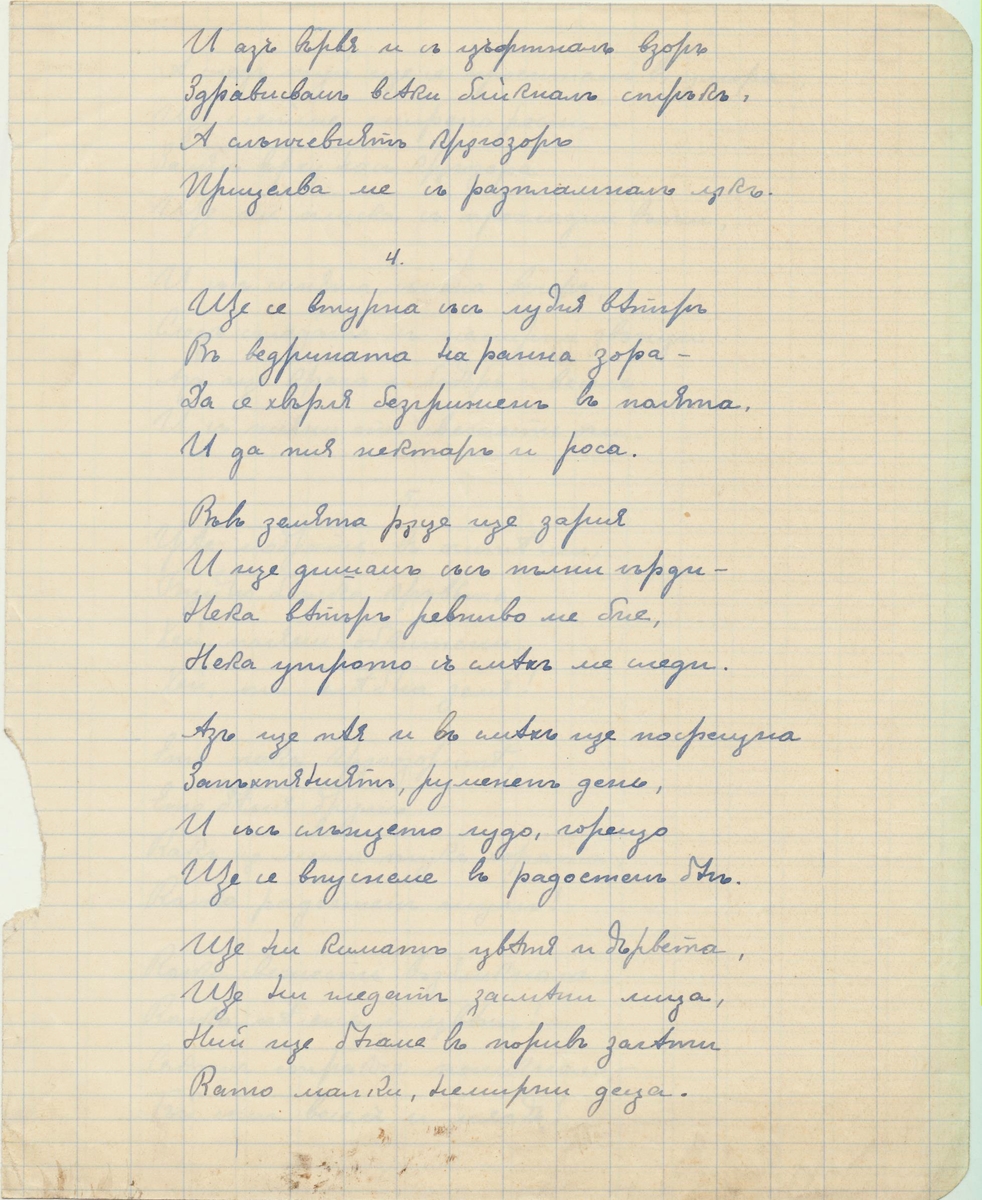 И азъ вървя и съ цъфтналъ взоръ
Здрависвамъ всѣки бликналъ стръкъ,
А слънчевиятъ кръгозоръ
Прицелва ме съ разпламналъ лѫкъ.
4.
Ще се втурна със лудия вѣтъръ
Въ ведрината на ранна зора –
Да се хвърля безгриженъ въ полята,
И да пия нектаръ и роса.
Във земята рѫце ще зария
И ще дишамъ със пълни гърди –
Нека вѣтъръ ревниво ме бие,
Нека утрото съ смѣхъ ме следи.
Азъ ще пѣя и въ смѣхъ ще посрещна
Запъхтяниятъ, руменъ день,
И със слънцето лудо, горещо
Ще се впуснеме въ радостенъ бѣгъ.
Ще ни киматъ цвѣтя и дървета,
Ще ни гледатъ засмѣни лица,
Ний ще бѣгаме въ поривъ залѣтни
Като малки, немирни деца.